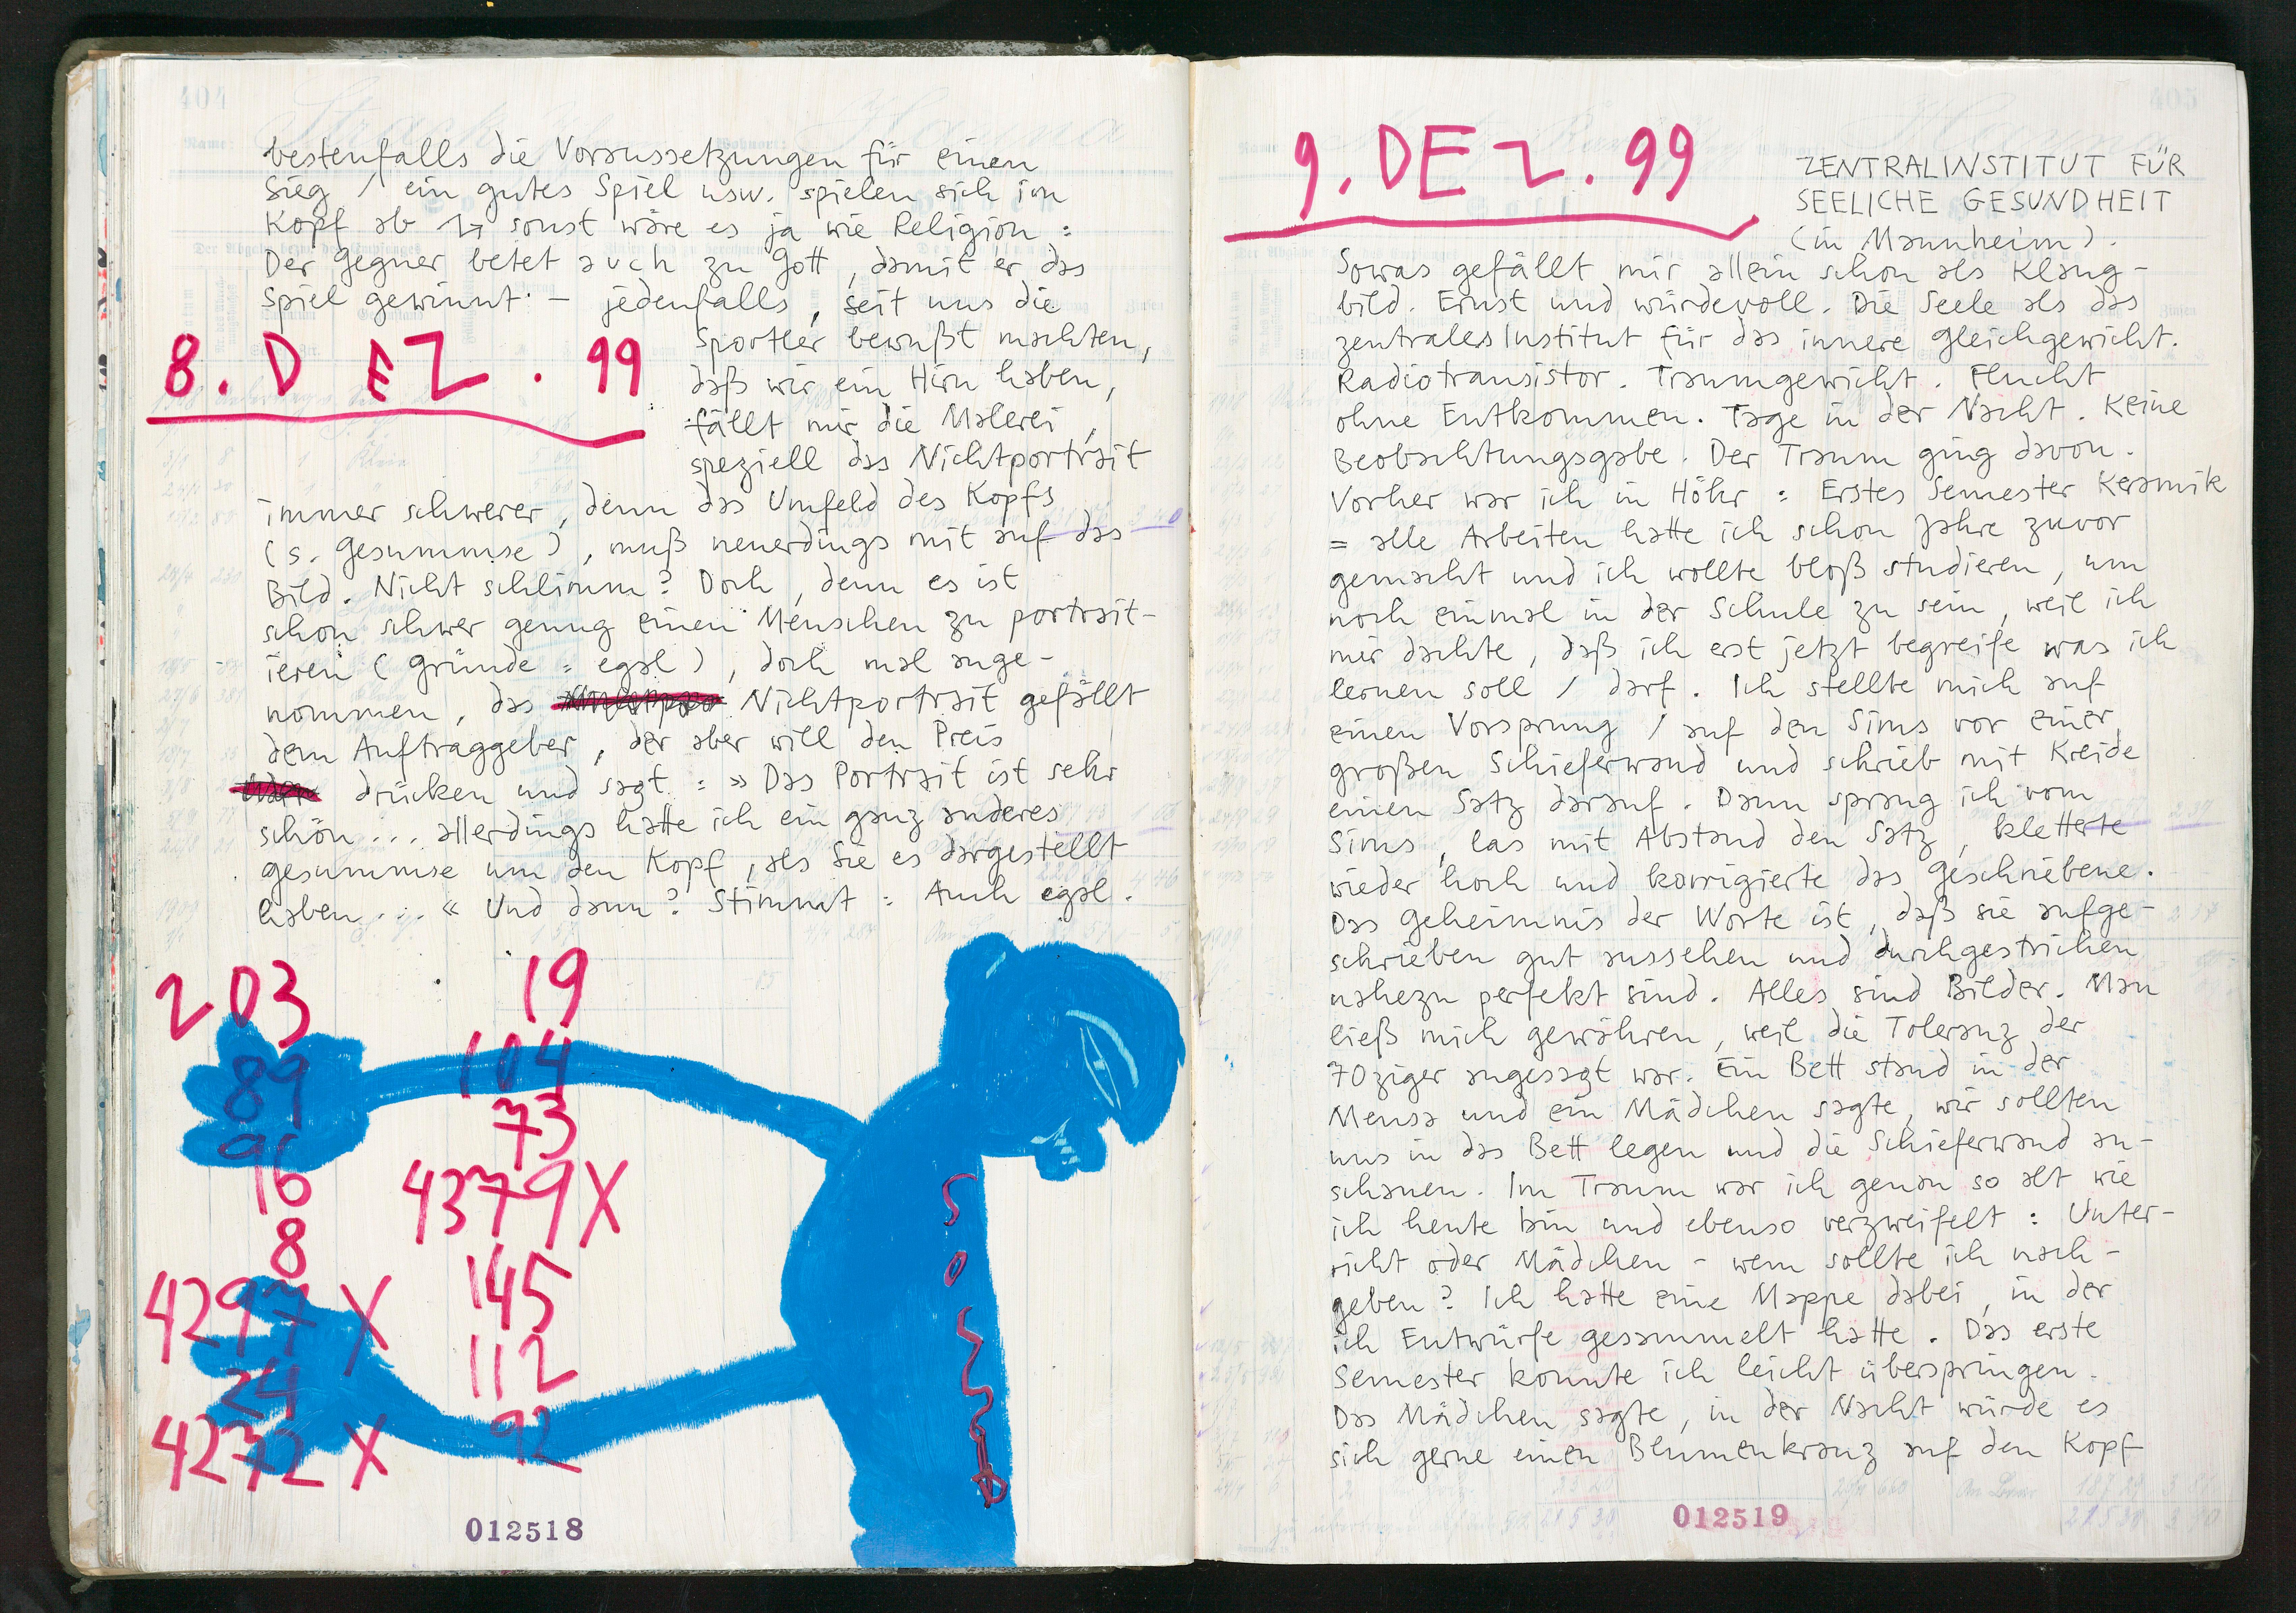 404
bestenfalls die Voraussetzungen für einen
Sieg / ein gutes Spiel usw. spielen sich im
Kopf ab sonst wäre es ja wie Religion :
Der Gegner betet auch zu Gott, damit er das
Spiel gewinnt – jedenfalls, seit uns die
8. DEZ. 99
Sportler bewußt machten,
daß wir ein Hirn haben,
fällt mir die Malerei,
speziell das Nichtportrait
immer schwerer, denn das Umfeld des Kopfs
(s. Gesummse), muß neuerdings mit auf das
Bild. Nicht schlimm? Doch, denn es ist
schon schwer genug einen Menschen zu portrait-
ieren (Gründe = egal), doch mal ange-
nommen, das Nichtportrait gefällt
dem Auftraggeber, der aber will den Preis
drücken und sagt : » Das Portrait ist sehr
schön ... allerdings hatte ich ein ganz anderes
gesummse um den Kopf, als Sie es dargestellt
haben ... « Und dann? Stimmt : Auch egal.
203
89
96
16
8
4297 X
24
4272 X
19
104
73
4379 X
145
112
92
012518
405
9. DEZ. 99
ZENTRALINSTITUT FÜR
SEELICHE GESUNDHEIT
(in Mannheim).
Sowas gefällt mir allein schon als Klang-
bild. Ernst und würdevoll. Die Seele als das
zentrales Institut für das innere Gleichgewicht.
Radiotransistor. Traumgewicht. Flucht
ohne Entkommen. Tage in der Nacht. Keine
Beobachtungsgabe. Der Traum ging davon.
Vorher war ich in Höhr : Erstes Semester Keramik
= alle Arbeiten hatte ich schon Jahre zuvor
gemacht und ich wollte bloß studieren, um
noch einmal in der Schule zu sein, weil ich
mir dachte, daß ich erst jetzt begreife was ich
lernen soll / darf. Ich stellte mich auf
einen Vorsprung / auf den Sims vor einer
großen Schieferwand und schrieb mit Kreide
einen Satz darauf. Dann sprang ich vom
Sims, las mit Abstand den Satz, kletterte
wieder hoch und korrigierte das Geschriebene.
Das Geheimnis der Worte ist, daß sie aufge-
schrieben gut aussehen und durchgestrichen
nahezu perfekt sind. Alles sind Bilder. Man
ließ mich gewähren, weil die Toleranz der
70ziger angesagt war. Ein Bett stand in der
Mensa und ein Mädchen sagte, wir sollten
uns in das Bett legen und die Schieferwand an-
schauen. Im Traum war ich genau so alt wie
ich heute bin und ebenso verzweifelt : Unter-
richt oder Mädchen – wem sollte ich nach-
geben? Ich hatte eine Mappe dabei, in der
ich Entwürfe gesammelt hatte. Das erste
Semester konnte ich leicht überspringen.
Das Mädchen sagte, in der Nacht würde es
sich gerne einen Blumenkranz auf den Kopf
012519